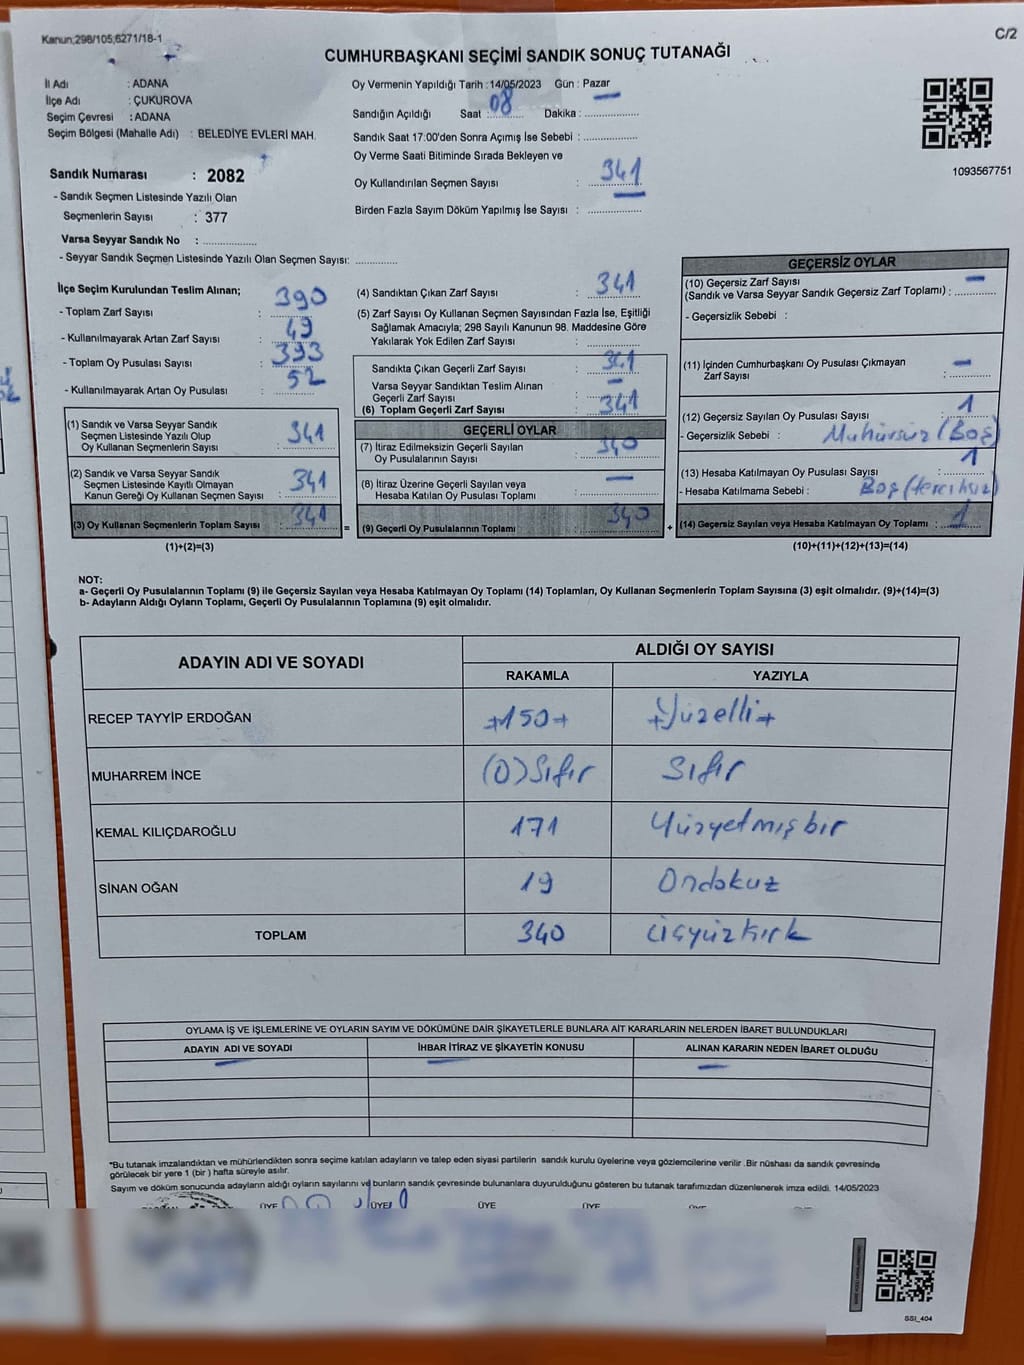 Kanun;298/105;6271/18-1
C/2
CUMHURBAŞKANI SEÇİMİ SANDIK SONUÇ TUTANAĞI
İl Adı : ADANA
İlçe Adı : ÇUKUROVA
Seçim Çevresi : ADANA
Seçim Bölgesi (Mahalle Adı) : BELEDİYE EVLERİ MAH.
Sandık Numarası : 2082
- Sandık Seçmen Listesinde Yazılı Olan
Seçmenlerin Sayısı : 377
Varsa Seyyar Sandık No : ................
- Seyyar Sandık Seçmen Listesinde Yazılı Olan Seçmen Sayısı: .............
Oy Vermenin Yapıldığı Tarih : 14/05/2023 Gün : Pazar
Sandığın Açıldığı Saat 08 Dakika : ................
Sandık Saat 17:00'den Sonra Açımış İse Sebebi : ................
Oy Verme Saati Bitiminde Sırada Bekleyen ve
Oy Kullandırılan Seçmen Sayısı : 341
Birden Fazla Sayım Döküm Yapılmış İse Sayısı : ................
1093567751
İlçe Seçim Kurulundan Teslim Alınan;
- Toplam Zarf Sayısı : 390
- Kullanılmayarak Artan Zarf Sayısı : 49
- Toplam Oy Pusulası Sayısı : 393
- Kullanılmayarak Artan Oy Pusulası : 52
(1) Sandık ve Varsa Seyyar Sandık
Seçmen Listesinde Yazılı Olup
Oy Kullanan Seçmenlerin Sayısı : 341
(2) Sandık ve Varsa Seyyar Sandık
Seçmen Listesinde Kayıtlı Olmayan
Kanun Gereği Oy Kullanan Seçmen Sayısı : 341
(3) Oy Kullanan Seçmenlerin Toplam Sayısı : 341
(1)+(2)=(3)
(4) Sandıktan Çıkan Zarf Sayısı : 341
(5) Zarf Sayısı Oy Kullanan Seçmen Sayısından Fazla İse, Eşitliği
Sağlamak Amacıyla; 298 Sayılı Kanunun 98. Maddesine Göre
Yakılarak Yok Edilen Zarf Sayısı :
Sandıkta Çıkan Geçerli Zarf Sayısı : 341
Varsa Seyyar Sandıktan Teslim Alınan
Geçerli Zarf Sayısı : -
(6) Toplam Geçerli Zarf Sayısı : 341
GEÇERLİ OYLAR
(7) İtiraz Edilmeksizin Geçerli Sayılan
Oy Pusulalarının Sayısı : 340
(8) İtiraz Üzerine Geçerli Sayılan veya
Hesaba Katılan Oy Pusulası Toplamı : -
= (9) Geçerli Oy Pusulalarının Toplamı : 340 +
GEÇERSİZ OYLAR
(10) Geçersiz Zarf Sayısı
(Sandık ve Varsa Seyyar Sandık Geçersiz Zarf Toplamı) : -
- Geçersizlik Sebebi :
(11) İçinden Cumhurbaşkanı Oy Pusulası Çıkmayan
Zarf Sayısı : -
(12) Geçersiz Sayılan Oy Pusulası Sayısı : 1
- Geçersizlik Sebebi : Mühürsüz (Boş)
(13) Hesaba Katılmayan Oy Pusulası Sayısı : 1
- Hesaba Katılmama Sebebi : Boş (tercihsiz)
(14) Geçersiz Sayılan veya Hesaba Katılmayan Oy Toplamı : 1
(10)+(11)+(12)+(13)=(14)
NOT:
a- Geçerli Oy Pusulalarının Toplamı (9) ile Geçersiz Sayılan veya Hesaba Katılmayan Oy Toplamı (14) Toplamları, Oy Kullanan Seçmenlerin Toplam Sayısına (3) eşit olmalıdır. (9)+(14)=(3)
b- Adayların Aldığı Oyların Toplamı, Geçerli Oy Pusulalarının Toplamına (9) eşit olmalıdır.
ADAYIN ADI VE SOYADI
ALDIĞI OY SAYISI
RAKAMLA YAZIYLA
RECEP TAYYİP ERDOĞAN +150+ +Yüzelli+
MUHARREM İNCE (0) Sıfır Sıfır
KEMAL KILIÇDAROĞLU 171 Yüzyetmişbir
SİNAN OĞAN 19 Ondokuz
TOPLAM 340 Üçyüzkırk
OYLAMA İŞ VE İŞLEMLERİNE VE OYLARIN SAYIM VE DÖKÜMÜNE DAİR ŞİKAYETLERLE BUNLARA AİT KARARLARIN NELERDEN İBARET BULUNDUKLARI
ADAYIN ADI VE SOYADI İHBAR İTİRAZ VE ŞİKAYETİN KONUSU ALINAN KARARIN NEDEN İBARET OLDUĞU
*Bu tutanak imzalandıktan ve mühürlendikten sonra seçime katılan adayların ve talep eden siyasi partilerin sandık kurulu üyelerine veya gözlemcilerine verilir .Bir nüshası da sandık çevresinde
görülecek bir yere 1 (bir ) hafta süreyle asılır.
Sayım ve döküm sonucunda adayların aldığı oyların sayılarını ve bunların sandık çevresinde bulunanlara duyurulduğunu gösteren bu tutanak tarafımızdan düzenlenerek imza edildi. 14/05/2023
ÜYE ÜYE ÜYE ÜYE
SSİ_404